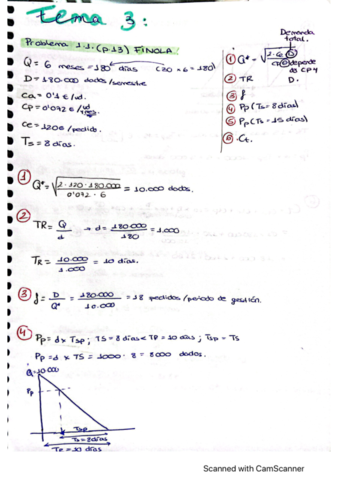 Tema 3:
Problema 1.1. (p.13) FINOLA.
Q = 6 meses = 180 días (30 × 6 = 180)
D = 180.000 dados/semestre
Ca = 0'1 €/ud
Cp = 0'072 €/ud
Ce = 120 €/pedido.
Ts = 8 días.
Demanda total.
① Q* =
depende de Cp y D.
② TR
③ f
④ Pp (Ts = 8 días)
⑤ Pp (Ts = 15 días)
⑥ Ct.
① Q* = √(2 · 120 · 180.000 / 0'072 · 6) = 10.000 dados.
② TR = Q/d → d = 180.000/180 = 1.000
TR = 10.000/1.000 = 10 días.
③ f = D/Q* = 180.000/10.000 = 18 pedidos/periodo de gestión.
④ Pp = d × Tsp ; TS = 8 días < TR = 10 días ; Tsp = Ts
Pp = d × TS = 1000 · 8 = 8000 dados.
Q = 10.000
Pp
Tsp
Ts = 8 días
TR = 10 días
Scanned with CamScanner